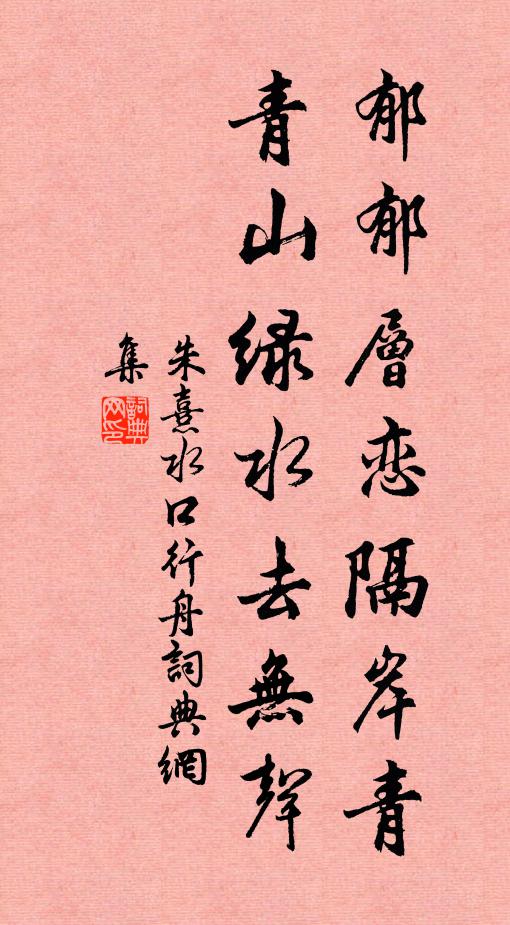 郁郁層恋隔岸青
青山緑水去無聲
朱熹水口行舟詞典網
集
詞典網印